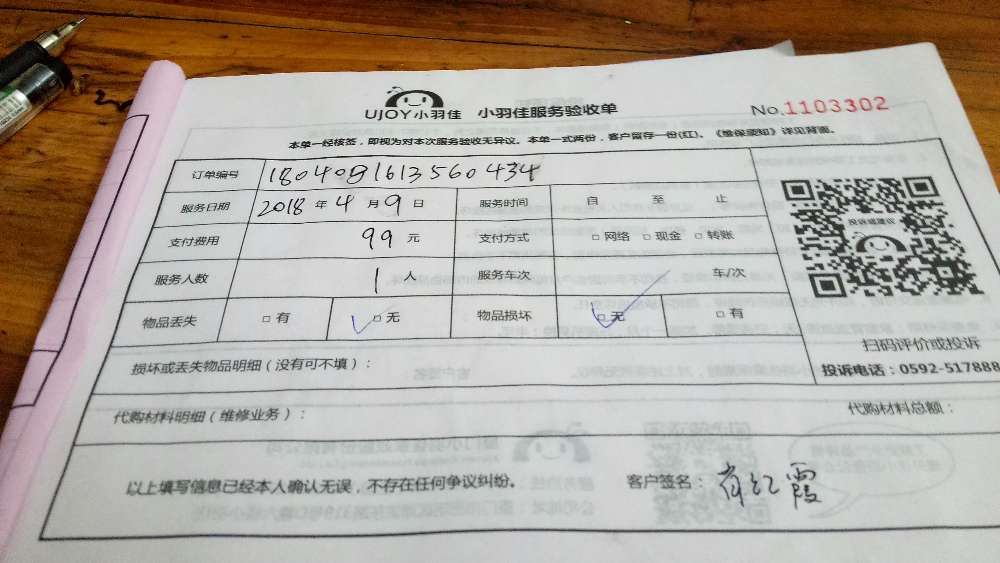 UJOY小羽佳 小羽佳服务验收单 No.1103302
本单一经核签，即视为对本次服务验收无异议。本单一式两份，客户留存一份(红)。《维保须知》详见背面。
订单编号 1804091613560434
服务日期 2018 年 4 月 9 日 服务时间 自 至 止
支付费用 99 元 支付方式 □ 网络 □ 现金 □ 转账
服务人数 1 人 服务车次 车/次
物品丢失 □ 有 □ 无 物品损坏 □ 无 □ 有
投诉或建议
扫码评价或投诉
投诉电话：0592-517888
损坏或丢失物品明细（没有可不填）：
代购材料明细（维修业务）： 代购材料总额：
以上填写信息已经本人确认无误，不存在任何争议纠纷。 客户签名：肖红霞